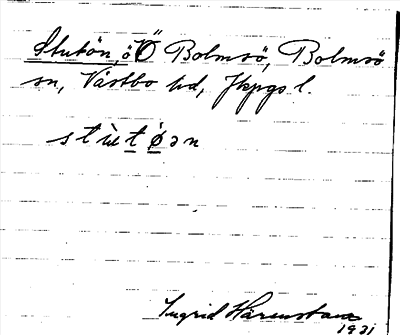 Stutön, ö Bolmsö, Bolmsö
sn, Västbo hd, Jkpgs l.
stùtøən
Ingrid
1931